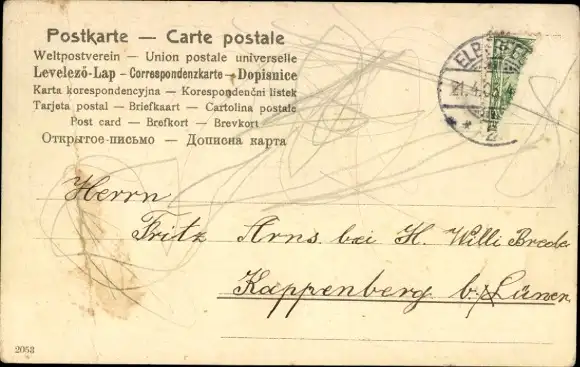 Postkarte — Carte postale
Weltpostverein — Union postale universelle
Levelező-Lap – Correspondenzkarte – Dopisnice
Karta korespondencyjna — Korespondenční listek
Tarjeta postal — Briefkaart — Cartolina postale
Post card — Brefkort — Brevkort
Открытое-письмо — Дописна карта
Herrn
Fritz Arns. bei H. Willi Brede
Kappenberg b./Lünen
2053